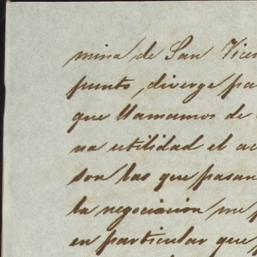 mina de San Vicen
punto, diverge pa
que llamamos de
na utilidad el a
son las que pasan
la negociacion me p
en particular que